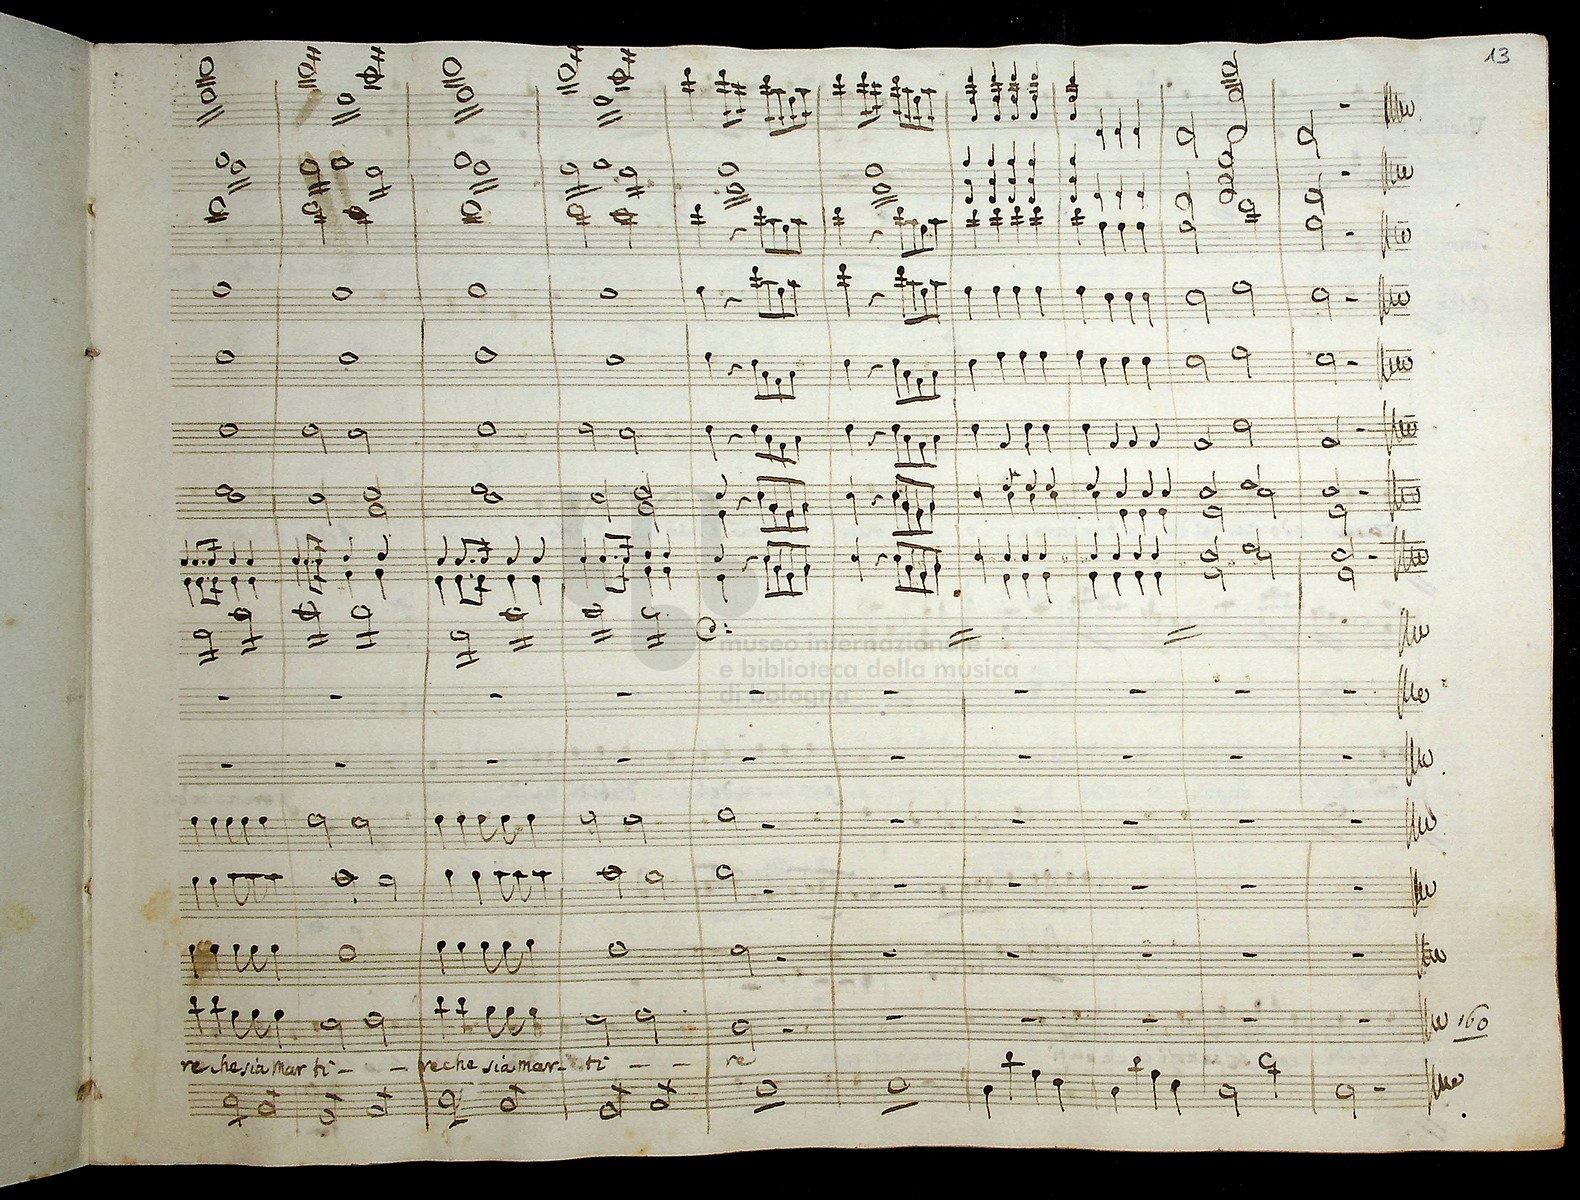 13
museo internazionale
e biblioteca della musica
di bologna
160
re che sia mar ti - - re che sia mar - ti - - re